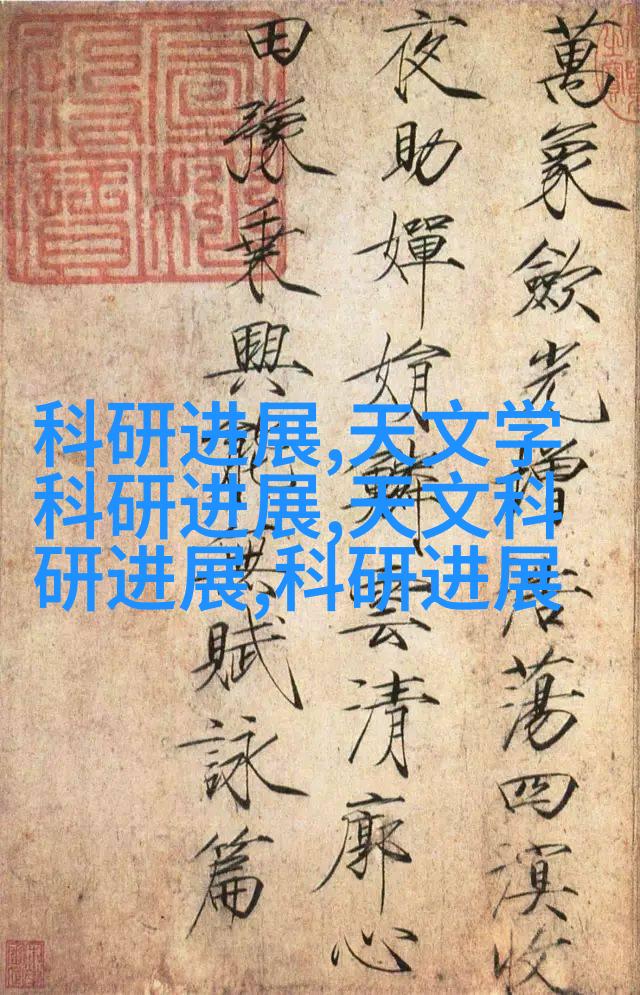 萬象歛光增浩蕩四溟收
夜助嬋娟鱗雲清廓心
田豫乗興能無賦詠篇
科研进展,天文学
科研进展,天文科
研进展,科研进展